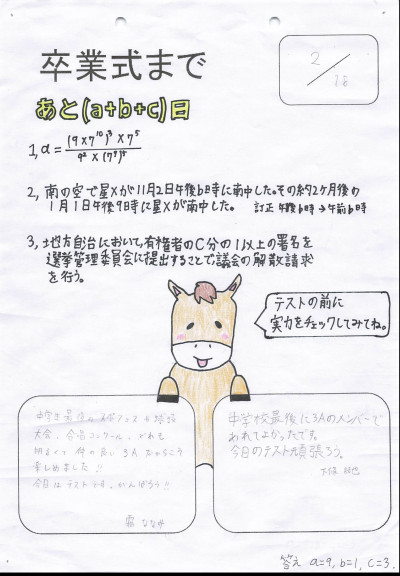 卒業式まで
2/18
あと(a+b+c)日
1, a = (9×7¹⁰)³×7⁵ / 9²×(7⁷)⁵
2, 南の空で星Xが11月2日午後b時に南中した。その約2ヶ月後の
1月1日午後9時に星Xが南中した。 訂正 午後b時→午前b時
3, 地方自治において有権者のC分の1以上の署名を
選挙管理委員会に提出することで議会の解散請求
を行う。
テストの前に
実力をチェックしてみてね。
大会、合唱コンクール、どれも
明るくて仲の良い3Aだからこそ
楽しめました!!
今日はテストです。がんばろう!!
中学校最後に3Aのメンバーで
あれてよかったです。
今日のテスト頑張ろう。
答え a=9, b=1, c=3.